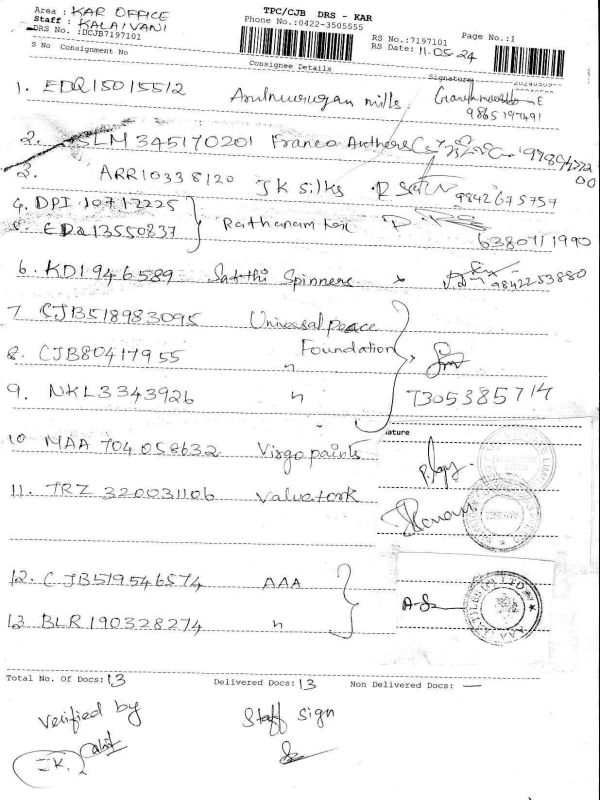 Area : KAR OFFICE
Staff : KALAIVANI
DRS No. :DCJB7197101
TPC/CJB DRS - KAR
Phone No.:0422-3505555
RS No.:7197101 Page No.:1
RS Date: 11-05-24
S No Consignment No Consignee Details Signature
1. EDQ15015512 Arulmurugan mills. 9865197491
2. SLM 345170201 Franco
3. ARR10338120 JK silks 9842675757
4. DPI 10712225
5. EDQ13550837 Rathanam tex 6380711990
6. KDI 946589 Sakthi Spinners 9842253880
7 CJB518983095 Universal peace
Foundation
8. CJB80417955 "
9. NKL3343926 " 7305385714
ature
10 MAA 704058632 Virgo paints
11. TRZ 320031106 Valuetork
12. CJB519546574 AAA
13 BLR 190328274 "
Total No. Of Docs: 13 Delivered Docs: 13 Non Delivered Docs: —
Verified by Staff sign